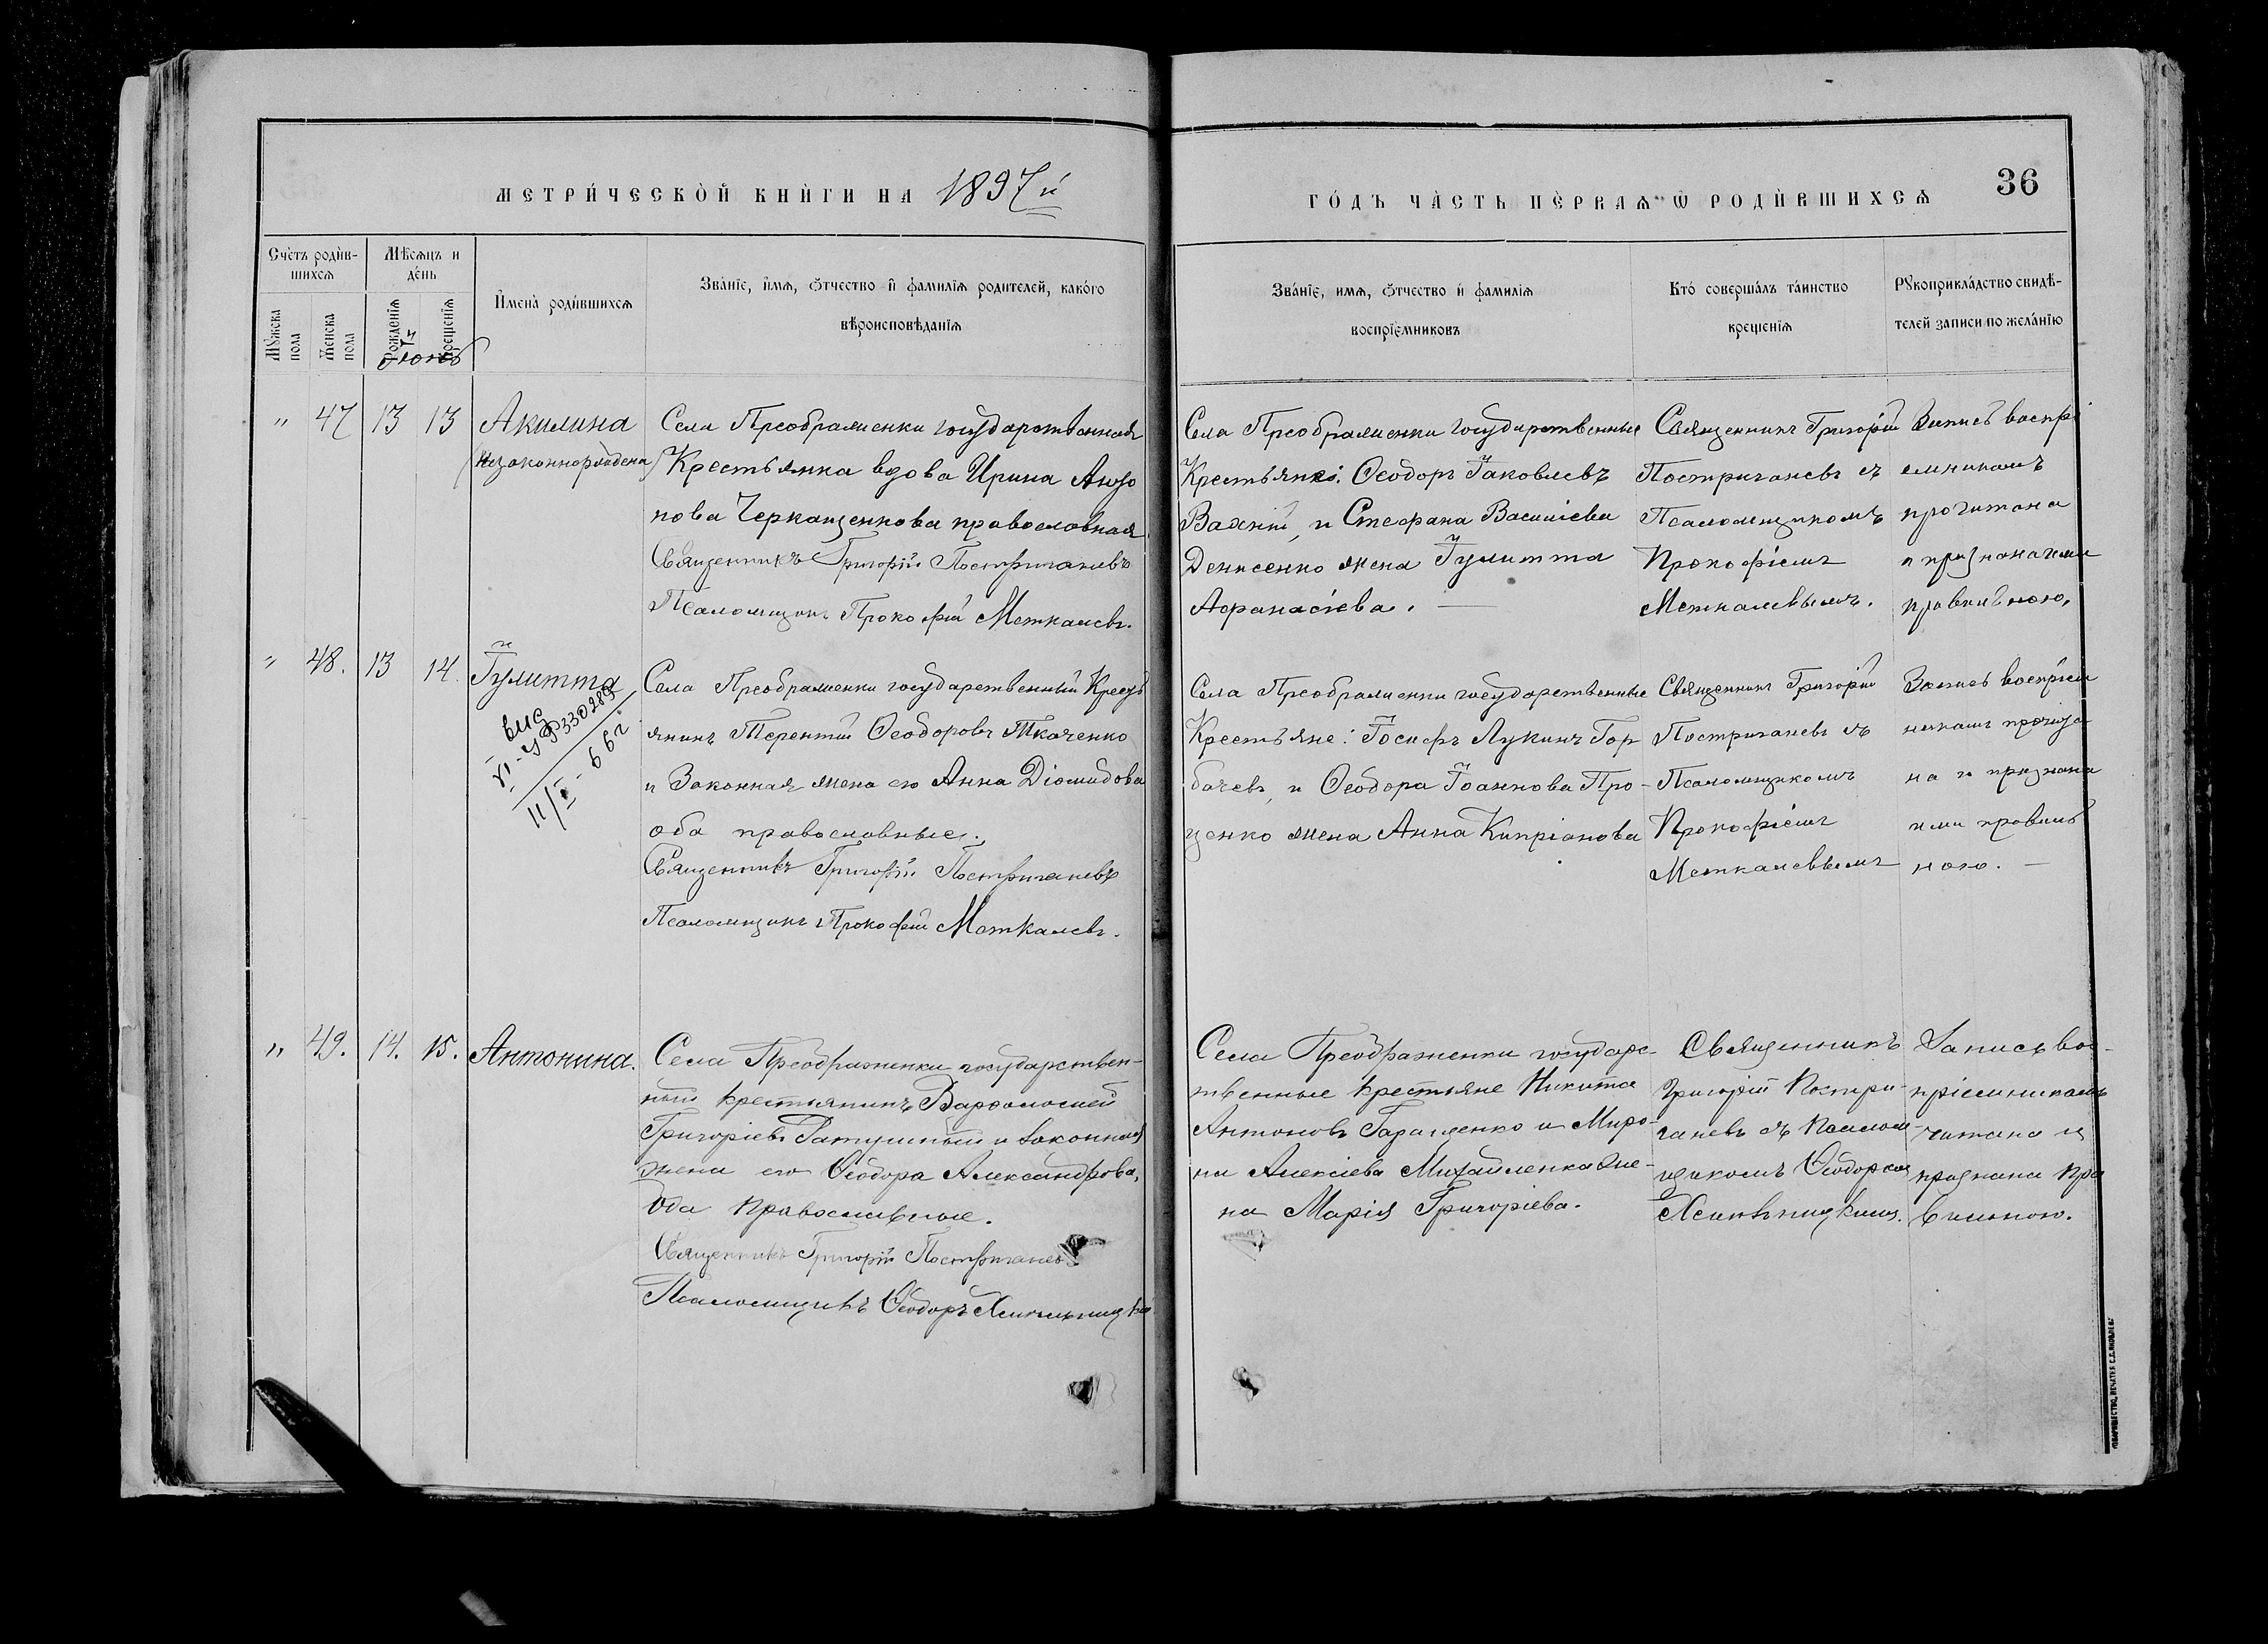 МЕТРИ́ЧЕСКОЙ КНИ́ГИ НА 1897й
ГО́ДЪ ЧА́СТЬ ПЕ́РВАѦ Ѡ РОДИ́ВШИХСѦ
36
Сче́тъ роди́в-
шихсѧ
Мѣ́сѧцъ и
де́нь
Мꙋ́жска
пола
Же́нска
пола
Рожде́нїѧ
Креще́нїѧ
Іюнь
И҆мена̀ роди́вшихсѧ
Зва́нїе, и҆́мѧ, ѻ҆́тчество и҆ фами́лїѧ роди́телей, како́го
вѣроисповѣ́данїѧ
Зва́нїе, имѧ, ѻ҆́тчество и҆ фами́лїѧ
воспрїе́мниковъ
Кто́ соверша́лъ та́инство
креще́нїѧ
Рꙋкоприкла́дство свидѣ́-
телей за́писи по жела́нїю
" 47 13 13 Акилина
(Незаконнорождена)
Села Преображенки государственная
Крестьянка вдова Ирина
нова Черкащенкова православная
Священникъ Григорій Постригачевъ
Псаломщикъ Прокофій Меткалевъ.
Села Преображенки государственные
Крестьяне: Ѳеодоръ Іаковлевъ
Важній, и Стефана Васильева
Денисенко жена Іулитта
Афанасіева. —
Священникъ Григорій
Постригачевъ съ
Псаломщикомъ
Прокофіемъ
Меткалевымъ.
Запись воспрі
емникамъ
прочитана
и признана ими
правильною.
" 48. 13 14. Іулитта
11/I-66г.
Села Преображенки государственный Кресть
янинъ Терентій Ѳеодоровъ Ткаченко
и Законная жена его Анна Діомидова
оба православные.
Священникъ Григорій Постригачевъ
Псаломщикъ Прокофій Меткалевъ.
Села Преображенки государственные
Крестьяне: Іосифъ Лукинъ Гор
бачевъ, и Ѳеодора Іоаннова Про-
ценко жена Анна Кипріанова
Священникъ Григорій
Постригачевъ съ
Псаломщикомъ
Прокофіемъ
Меткалевымъ
Запись воспріем
никамъ прочита
на и признана
ими правиль
ною. —
" 49. 14. 15. Антонина.
Села Преображенки государствен-
ный крестьянинъ Варѳоломей
Григоріевъ Ратушный и законная
жена его Ѳеодора Александрова,
Оба Православные.
Священникъ Григорій Постригачевъ
Псаломщикъ Ѳеодоръ
Села Преображенки государс-
твенные крестьяне Никита
Антоновъ Гаращенко и Миро-
на Алексіева Михайленка же-
на Марія Григоріева.
Священникъ
Григорій Постри-
гачевъ съ Псалом-
щикомъ Ѳеодоромъ
Запись вос-
пріемникамъ
читана и
признана пра
вильною.